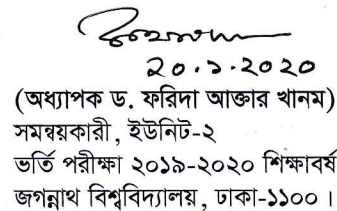 ২০.১.২০২০
(অধ্যাপক ড. ফরিদা আক্তার খানম)
সমন্বয়কারী, ইউনিট-২
ভর্তি পরীক্ষা ২০১৯-২০২০ শিক্ষাবর্ষ
জগন্নাথ বিশ্ববিদ্যালয়, ঢাকা-১১০০।